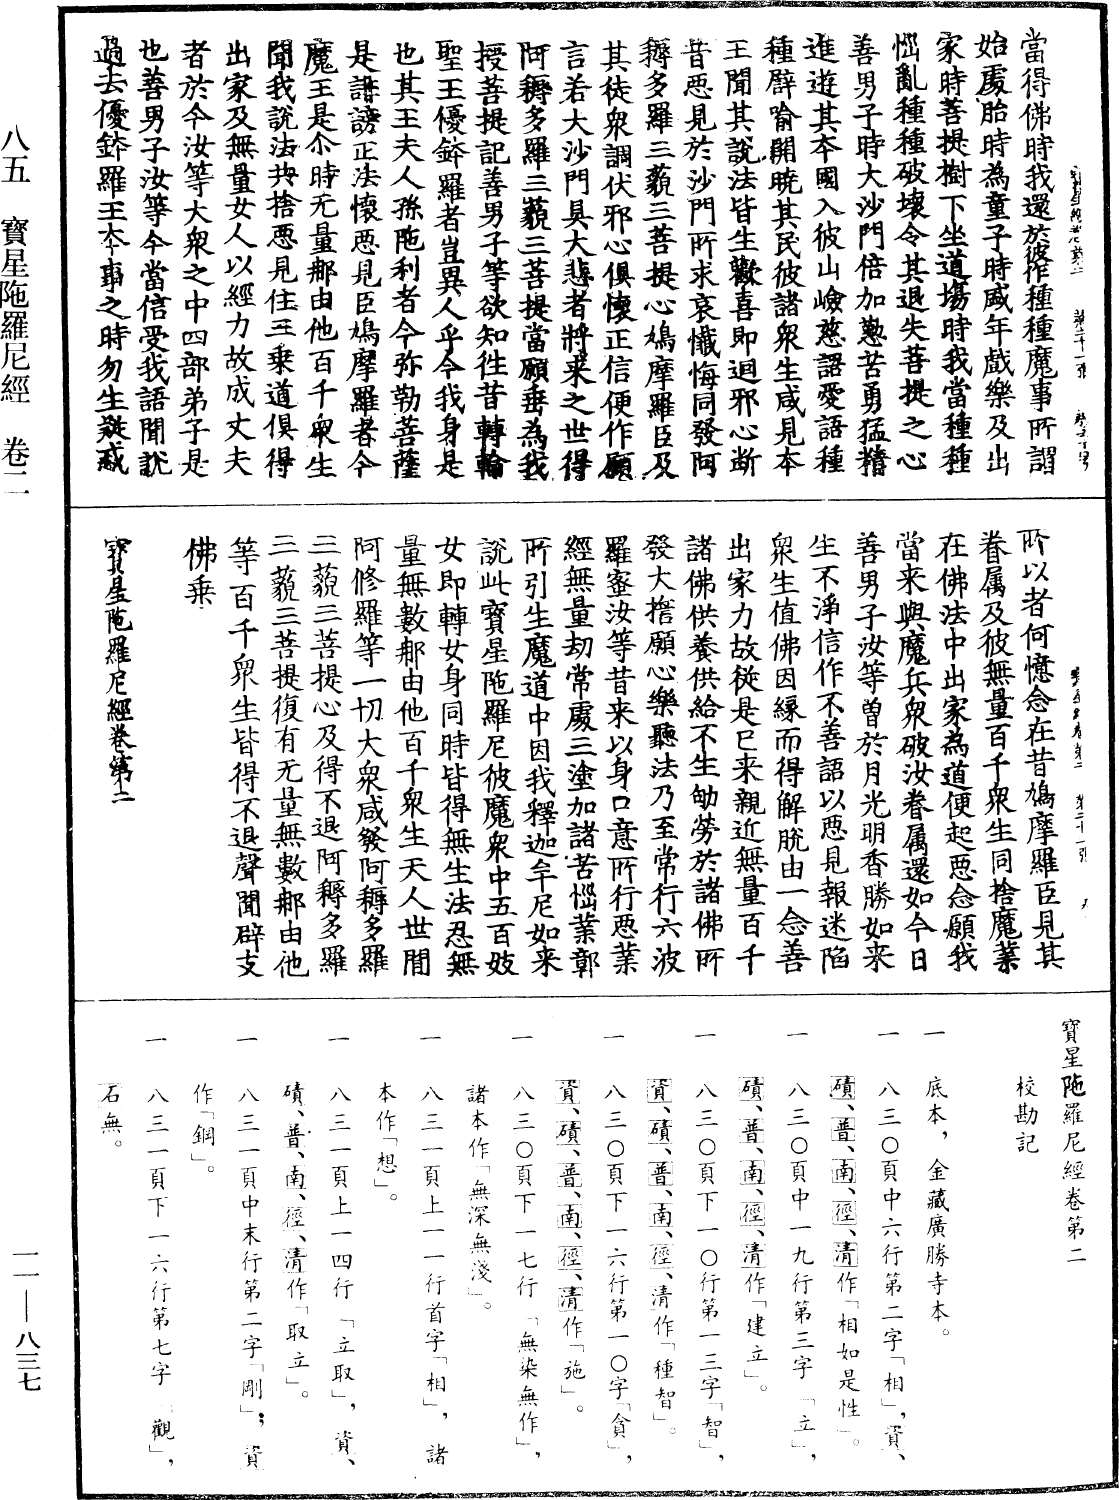 八五　寶星陁羅尼經　卷二
一一—八三七
當得佛時我還於彼作種種魔事所謂
始處胎時為童子時盛年戲樂及出
家時菩提樹下坐道場時我當種種
惱亂種種破壞令其退失菩提之心
善男子時大沙門倍加懃苦勇猛精
進遊其本國入彼山嶮慈語愛語種
種譬喻開曉其民彼諸衆生咸見本
王聞其說法皆生歡喜即迴邪心斷
昔惡見於沙門所求哀懺悔同發阿
耨多羅三藐三菩提心鳩摩羅臣及
其徒衆調伏邪心俱懷正信便作願
言若大沙門具大悲者將来之世得
阿耨多羅三藐三菩提當願垂為我
授菩提記善男子等欲知往昔轉輪
聖王優鉢羅者豈異人乎今我身是
也其王夫人孫陁利者今弥勒菩薩
是誹謗正法懷惡見臣鳩摩羅者今
魔王是尒時无量那由他百千衆生
聞我說法共捨惡見住三乗道俱得
出家及無量女人以經力故成丈夫
者於今汝等大衆之中四部弟子是
也善男子汝等今當信受我語聞說
過去優鉢羅王本事之時勿生疑惑
所以者何憶念在昔鳩摩羅臣見其
眷属及彼無量百千衆生同捨魔業
在佛法中出家為道便起惡念願我
當来與魔兵衆破汝眷属還如今日
善男子汝等曽於月光明香勝如来
生不淨信作不善語以惡見報迷陷
衆生值佛因緣而得解脫由一念善
出家力故從是已来親近無量百千
諸佛供養供給不生劬勞於諸佛所
發大擔願心樂聽法乃至常行六波
羅蜜汝等昔来以身口意所行惡業
經無量劫常處三塗加諸苦惱業鄣
所引生魔道中因我釋迦牟尼如来
說此寶星陁羅尼彼魔衆中五百妓
女即轉女身同時皆得無生法忍無
量無數那由他百千衆生天人世間
阿修羅等一切大衆咸發阿耨多羅
三藐三菩提心及得不退阿耨多羅
三藐三菩提復有无量無數那由他
等百千衆生皆得不退聲聞辟支
佛乗
寶星陁羅尼經卷第二
寶星陁羅尼經卷第二
校勘記
一　底本，金藏廣勝寺本。
一　八三〇頁中六行第二字「相」，資、
磧、普、南、徑、清作「相如是性」。
一　八三〇頁中一九行第三字「立」，
磧、普、南、徑、清作「建立」。
一　八三〇頁下一〇行第一三字「智」，
資、磧、普、南、徑、清作「種智」。
一　八三〇頁下一六行第一〇字「貪」，
資、磧、普、南、徑、清作「施」。
一　八三〇頁下一七行「無染無作」，
諸本作「無深無淺」。
一　八三一頁上一一行首字「相」，諸
本作「想」。
一　八三一頁上一四行「立取」，資、
磧、普、南、徑、清作「取立」。
一　八三一頁中末行第二字「剛」；資
作「鋼」。
一　八三一頁下一六行第七字「觀」，
石無。